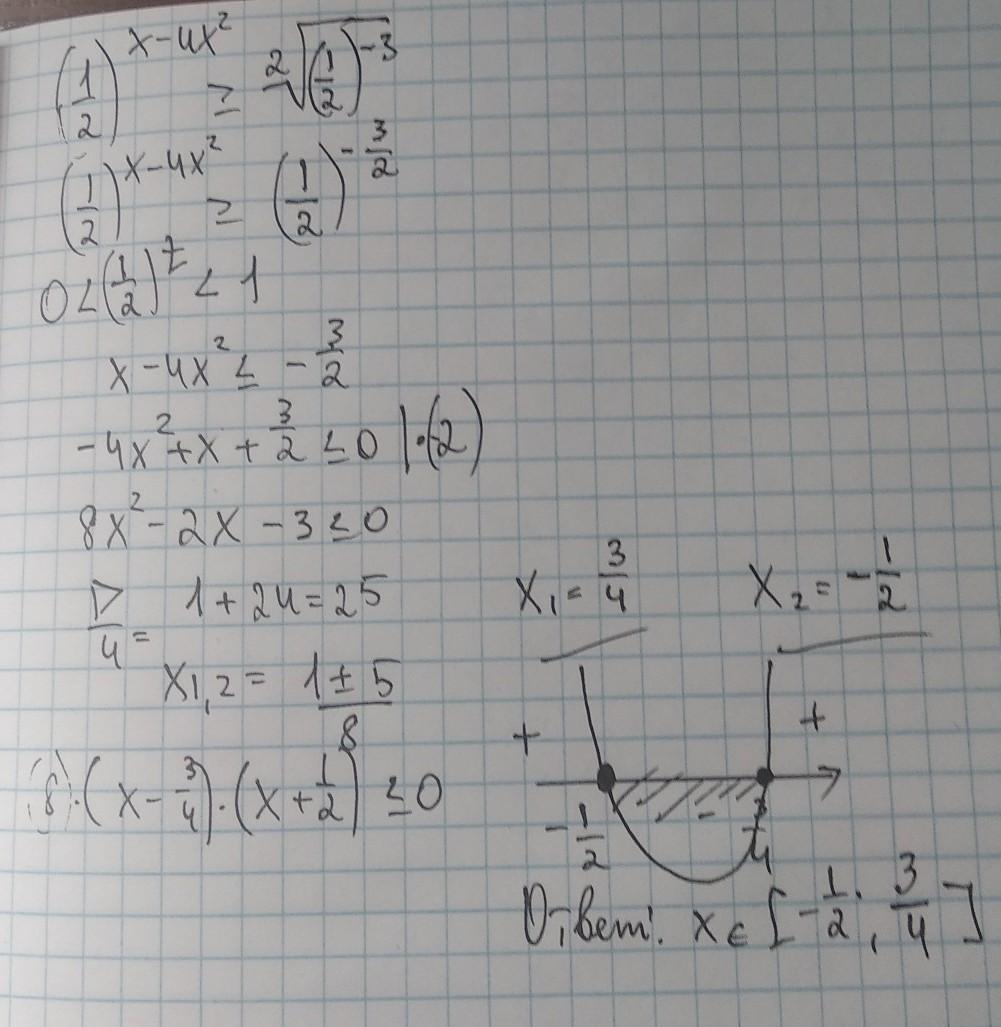 (1/2)^(x-4x²) ≥ ²√((1/2)^(-3))
(1/2)^(x-4x²) ≥ (1/2)^(-3/2)
0 < (1/2)^t < 1
x - 4x² ≤ -3/2
-4x² + x + 3/2 ≤ 0 | ·(-2)
8x² - 2x - 3 ≤ 0
D/4 = 1 + 24 = 25
x₁,₂ = (1 ± 5)/8
(8)·(x - 3/4)·(x + 1/2) ≤ 0
x₁ = 3/4 x₂ = -1/2
+ - +
-1/2 3/4
Ответ: x ∈ [-1/2; 3/4]